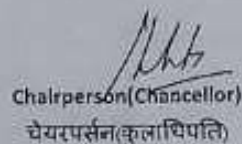 Chairperson(Chancellor)
चेयरपर्सन(कुलाधिपति)